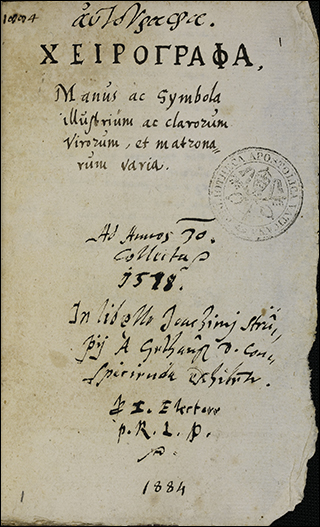 1884
αὐτόγραφα.
ΧΕΙΡΟΓΡΑΦΑ,
Manus ac Symbola
illustrium ac clarorum
Virorum, et matrona-
rum varia.
BIBLIOTHECA APOSTOLICA VATICANA
Ad Annos 30.
Collecta
1578.
In libello Joachimj Stru-
pij A Gelhausz D. Con-
spicienda exhibent.
P. I. Electore
p. R. L. P.
1884
1